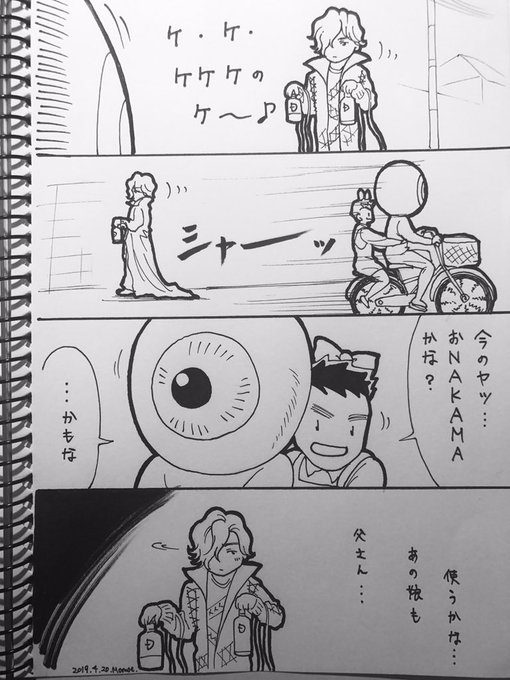 ケ・ケ・
ケケケの
ケ〜♪
シャーッ
今のヤツ…
おNAKAMA
かな?
…かもな
使うかな…
あの娘も
父さん…
2019.4.20.Momoe.